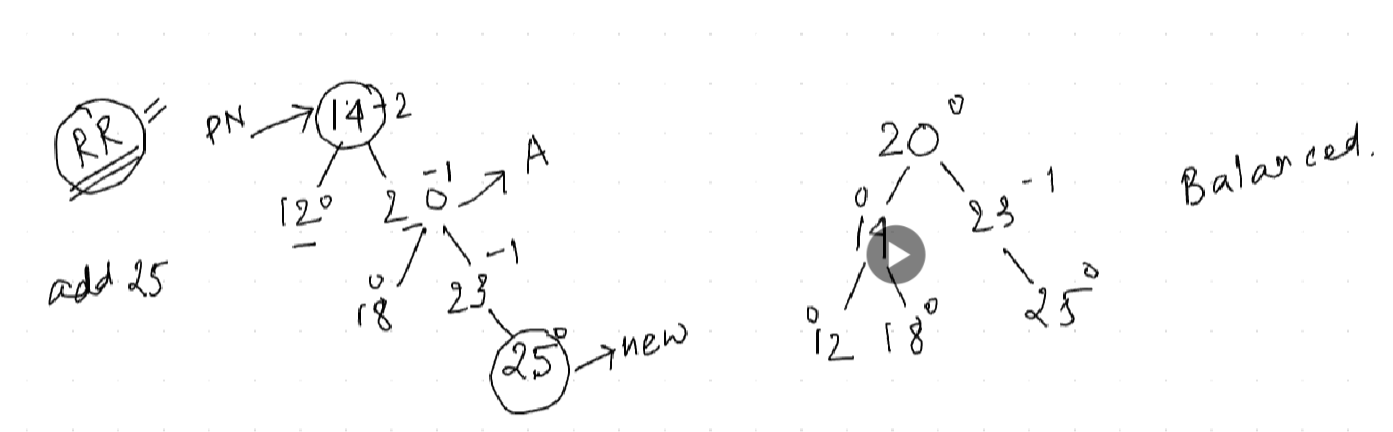 RR
PN
14 -2
12 0
20 -1
A
18 0
23 -1
25 0
new
add 25
20 0
14 0
23 -1
12 0
18 0
25 0
Balanced.